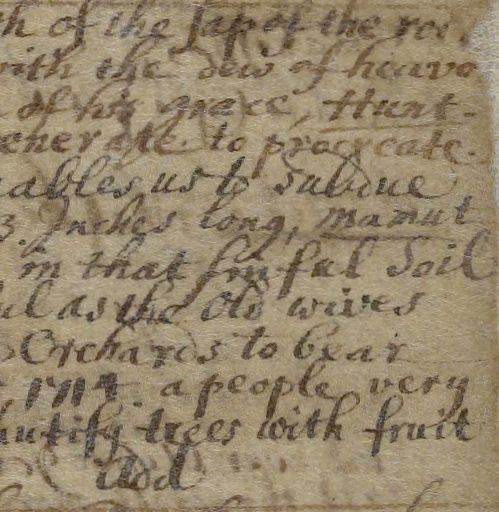 of the sap of the
with the dew of heave
of his grace, Hunt.
enerate to procreate.
ables us to Subdue
3. Inches long, mamut
in that sinful Soil
ul as the Old wives
Orchards to bear
1714. a people very
autify trees with fruit
add